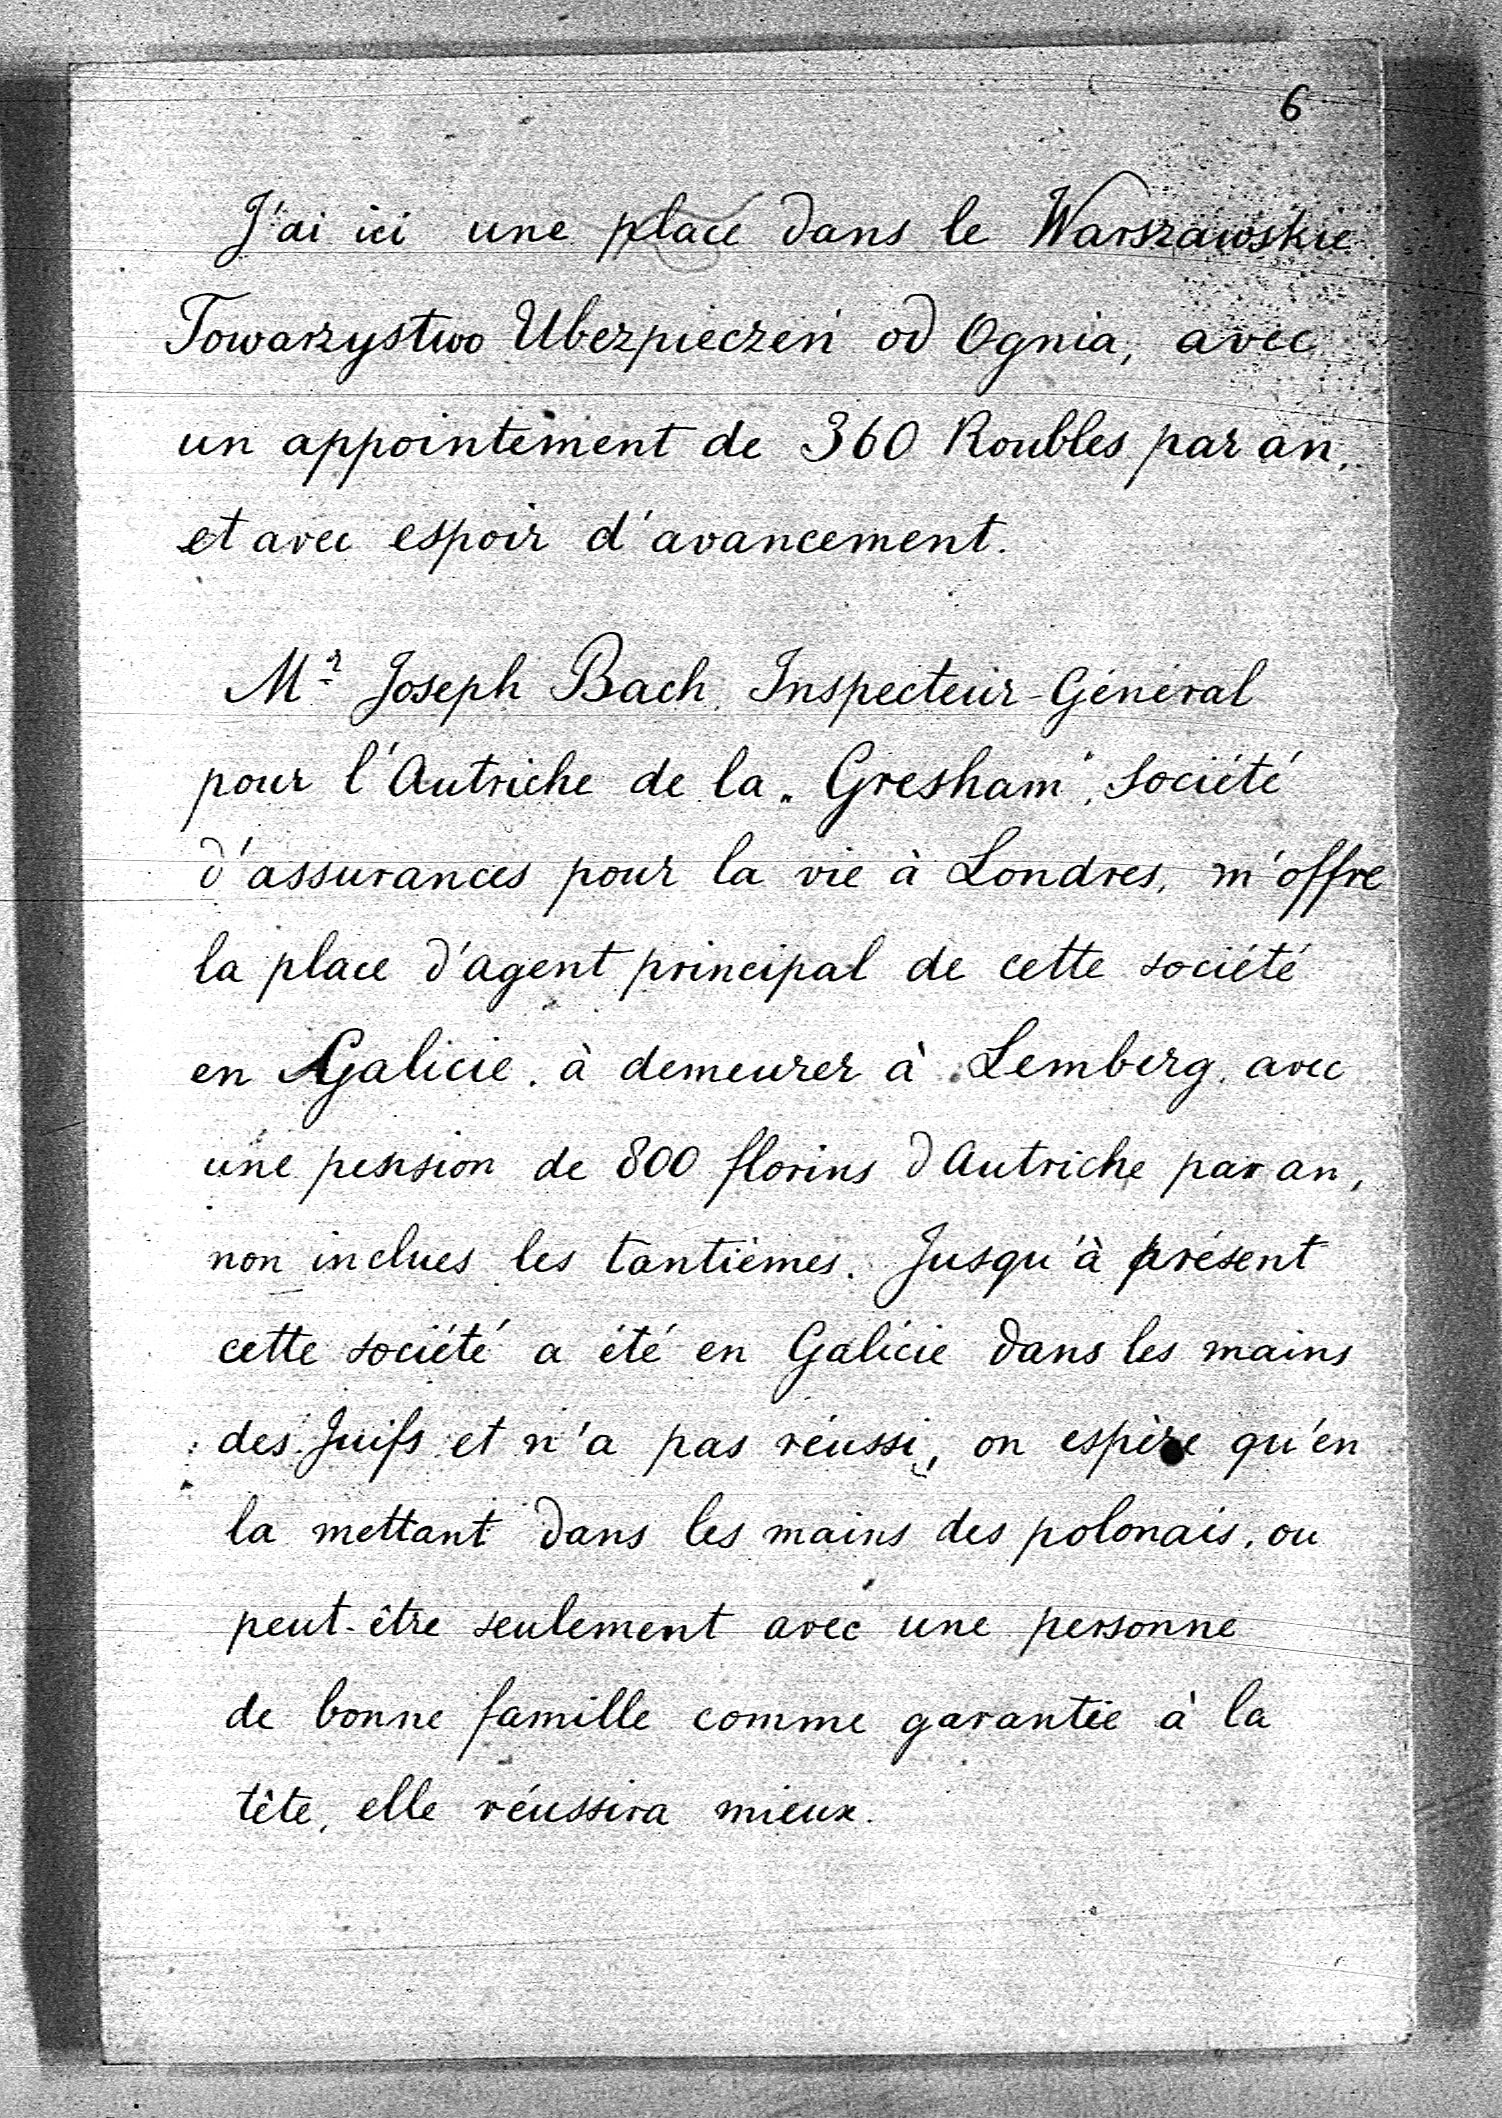 6
J'ai ici une place dans le Warszawskie
Towarzystwo Ubezpieczeń od Ognia, avec
un appointement de 360 Roubles par an,
et avec espoir d'avancement.
Mr Joseph Bach, Inspecteur-Général
pour l'Autriche de la „Gresham", société
d'assurances pour la vie à Londres, m'offre
la place d'agent principal de cette société
en Galicie, à demeurer à Lemberg, avec
une pension de 800 florins d'Autriche par an,
non inclues les tantièmes. Jusqu'à présent
cette société a été en Galicie dans les mains
des Juifs et n'a pas réussi, on espère qu'en
la mettant dans les mains des polonais, ou
peut-être seulement avec une personne
de bonne famille comme garantie à la
tête, elle réussira mieux.